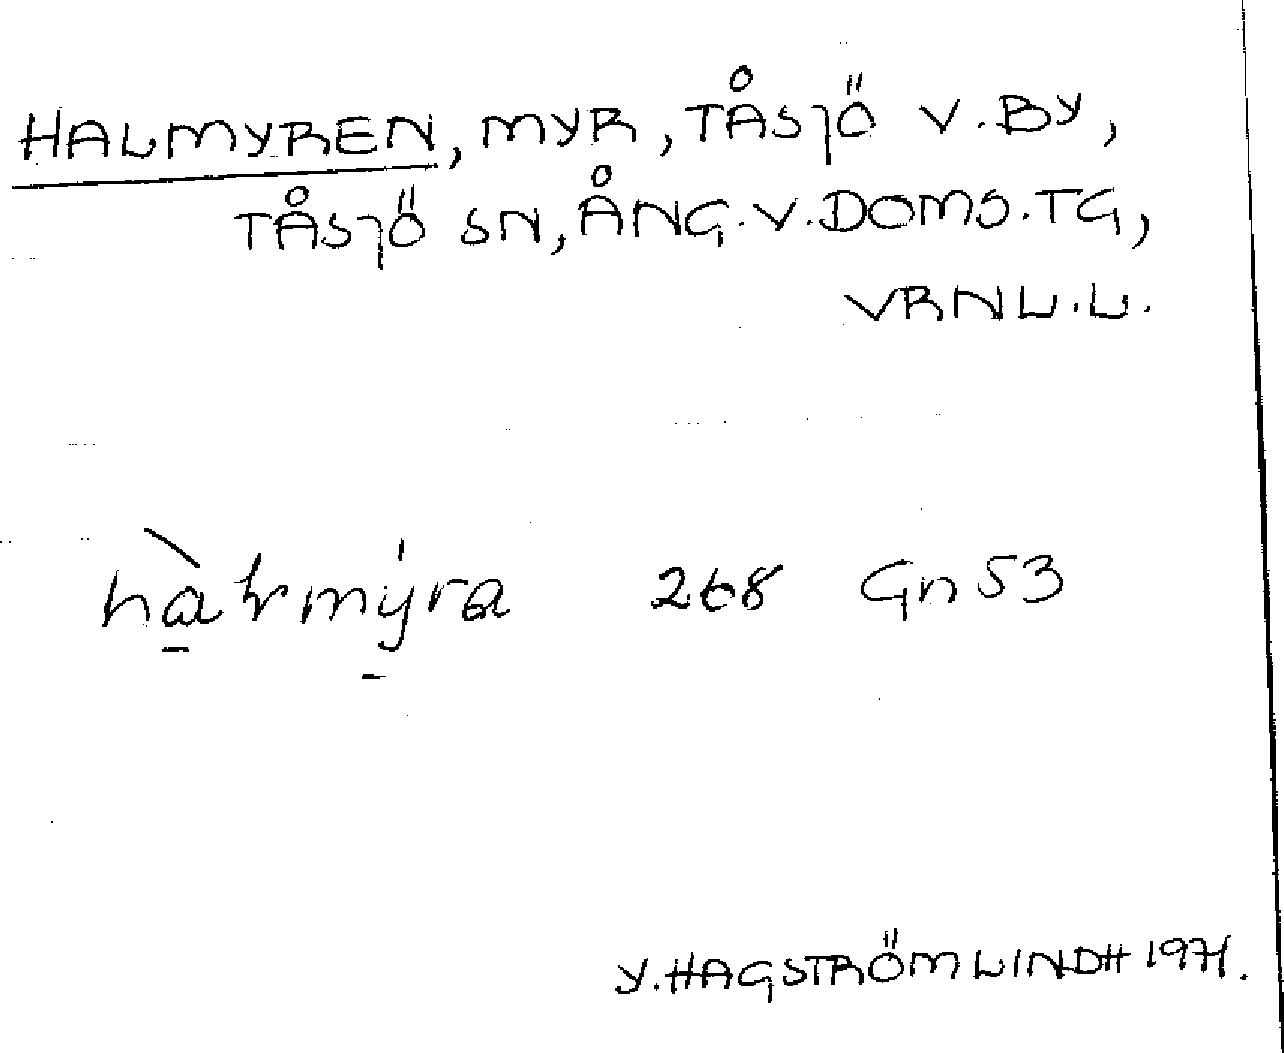 HALMYREN, MYR, TÅSJÖ V. BY,
TÅSJÖ SN, ÅNG. V. DOMS. TG,
VRNL. L.
268 Gn 53
Y. HAGSTRÖM LINDH 1971.